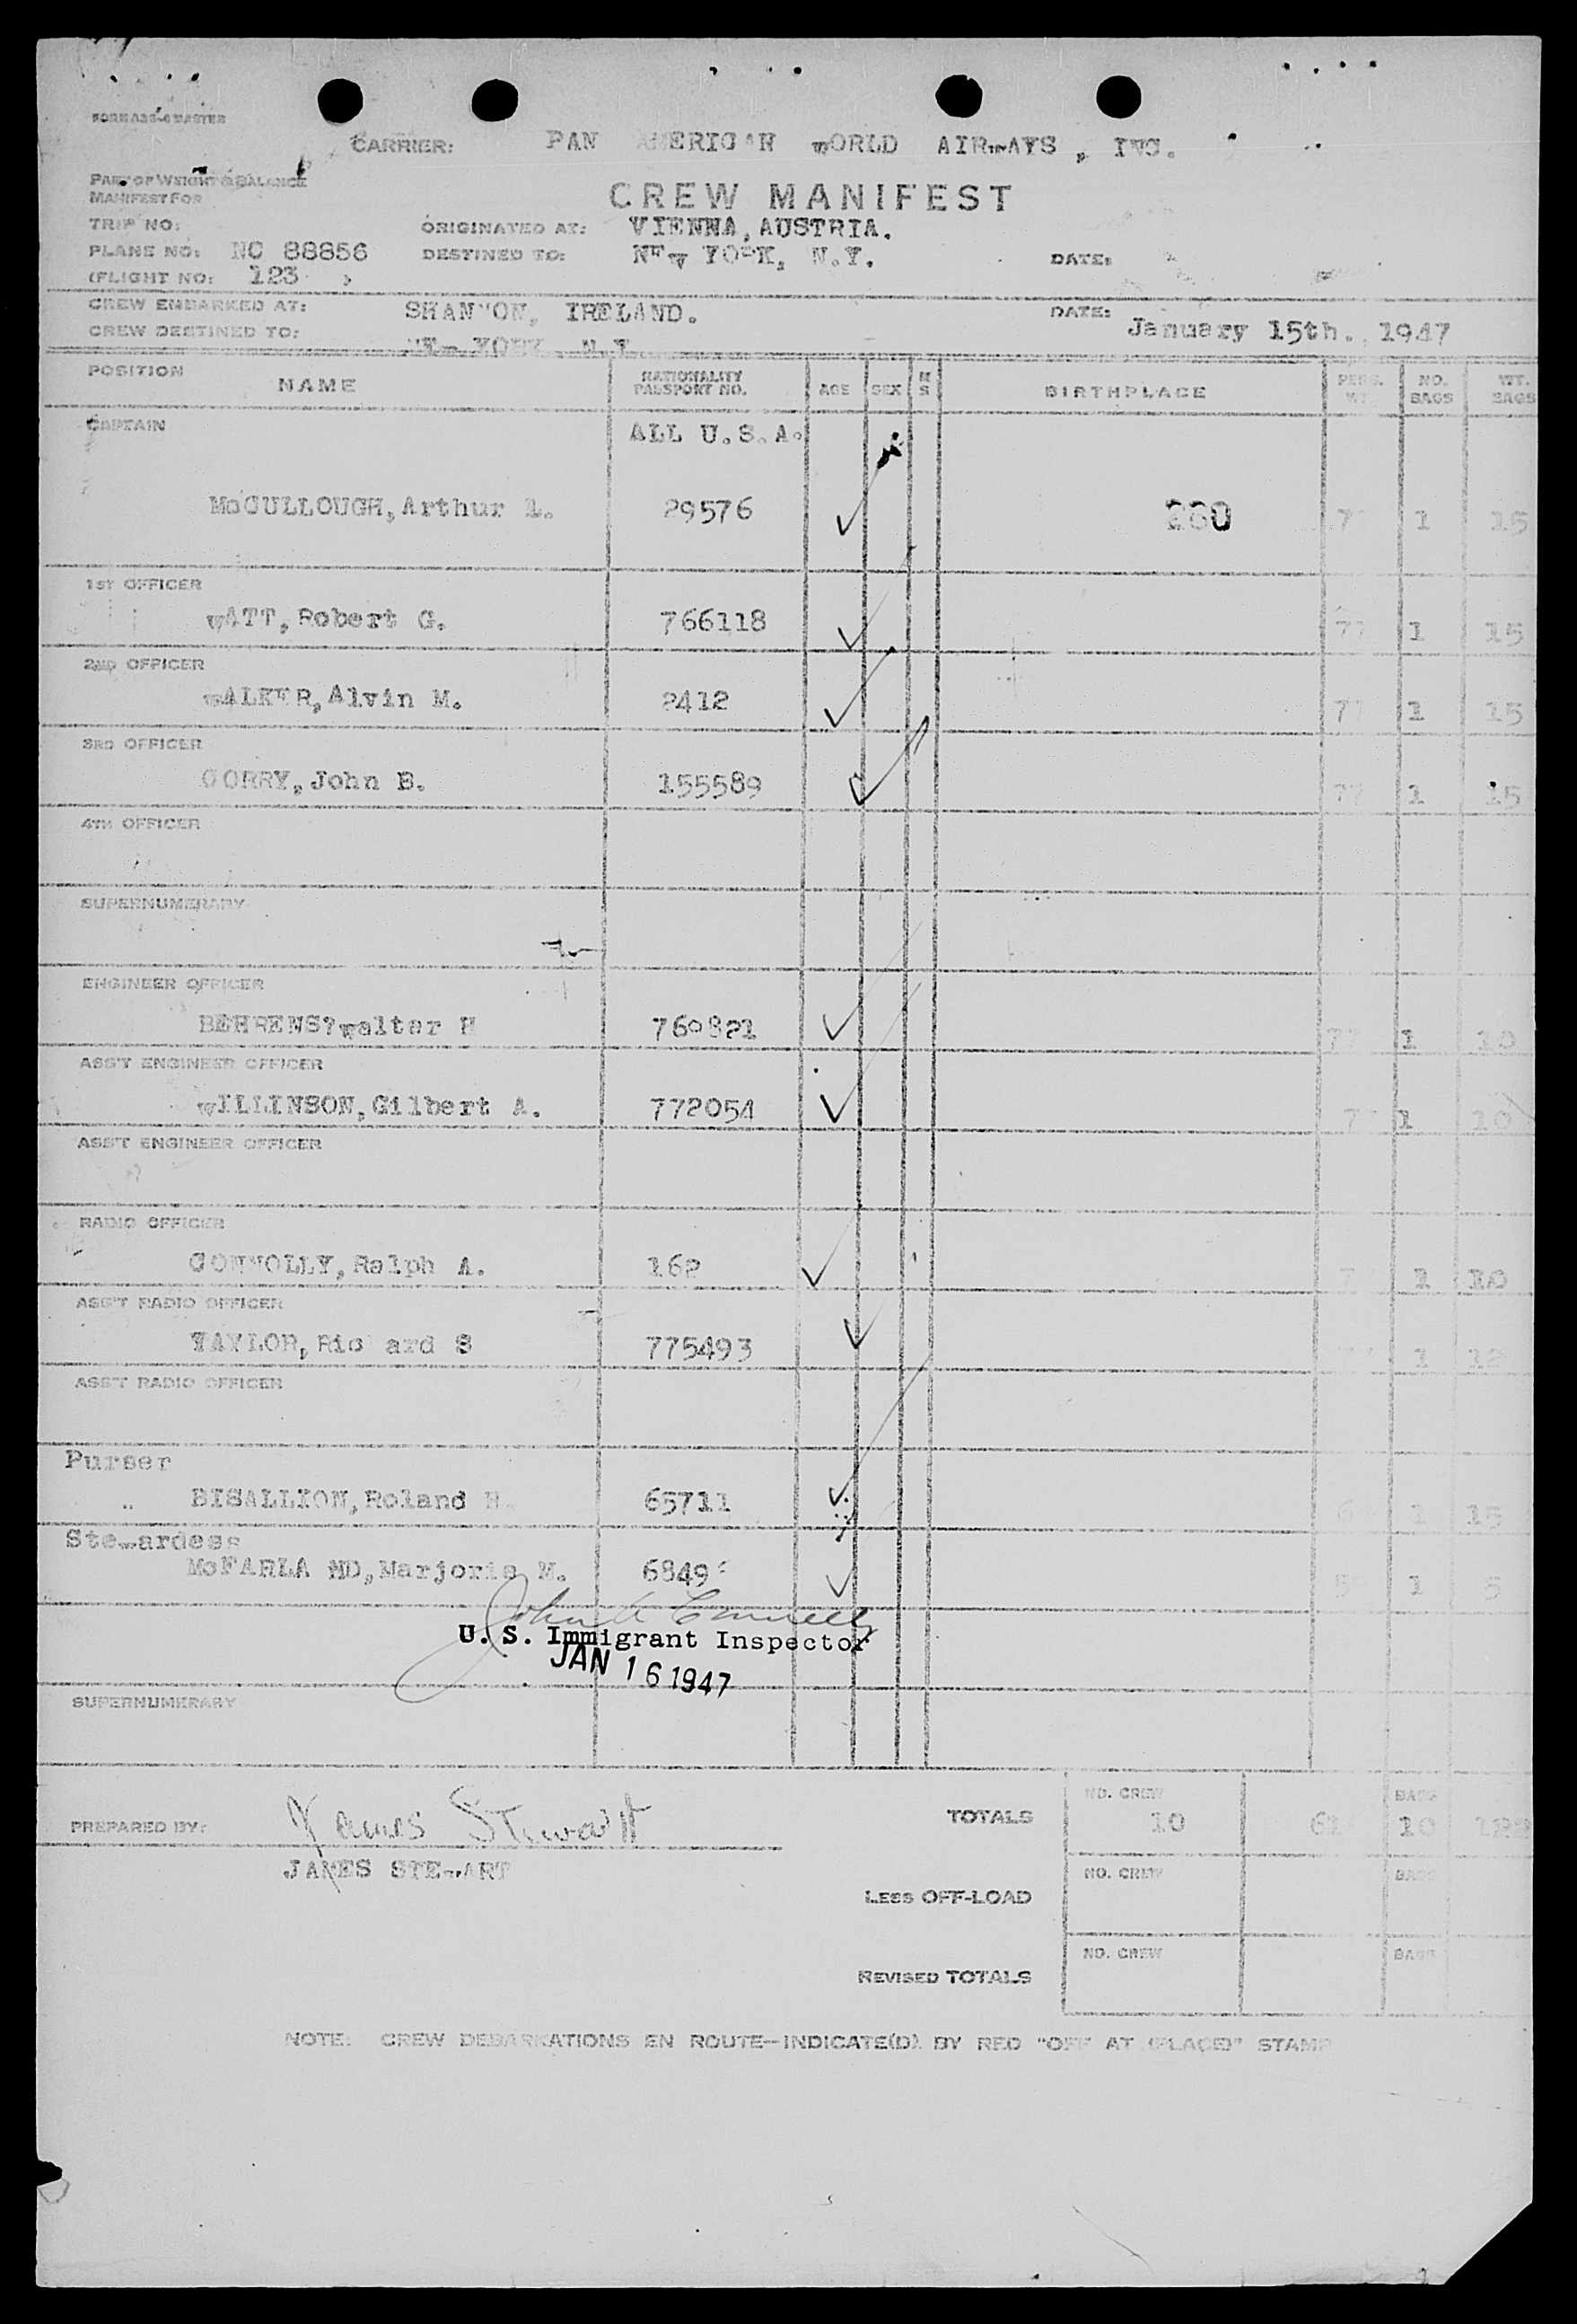 CARRIER: PAN AMERICAN WORLD AIRWAYS, INC.
PART OF WEIGHT & BALANCE
MANIFEST FOR
CREW MANIFEST
TRIP NO:
ORIGINATED AT: VIENNA, AUSTRIA.
PLANE NO: NC 88856
DESTINED TO: NEW YORK, N.Y.
DATE:
(FLIGHT NO: 123 )
CREW EMBARKED AT: SHANNON, IRELAND.
DATE: January 15th. 1947
CREW DESTINED TO: NEW YORK, N.Y.
POSITION NAME NATIONALITY PASSPORT NO. AGE SEX M S BIRTHPLACE PERS. WT. NO. BAGS WT. BAGS
CAPTAIN ALL U.S.A.
McCULLOUGH, Arthur L. 29576 1 15
1ST OFFICER
WATT, Robert G. 766118 77 1 15
2ND OFFICER
WALKER, Alvin M. 2412 77 1 15
3RD OFFICER
CORRY, John B. 155589 77 1 15
4TH OFFICER
SUPERNUMERARY
ENGINEER OFFICER
BEHRENS?Walter H 1 10
ASS'T ENGINEER OFFICER
WILLINSON, Gilbert A. 772054 1 10
ASS'T ENGINEER OFFICER
RADIO OFFICER
CONNOLLY, Ralph A. 162 1 10
ASS'T RADIO OFFICER
TAYLOR, Ric ard S 775493 1 12
ASS'T RADIO OFFICER
Purser
" BISALLION, Roland H. 65711 1 15
Stewardess
McFARLA ND, Marjorie M. 1 5
U. S. Immigrant Inspector
JAN 16 1947
SUPERNUMERARY
PREPARED BY: James Stewart
JAMES STEWART
TOTALS NO. CREW 10 BAGS 10 122
LESS OFF-LOAD NO. CREW BAGS
REVISED TOTALS NO. CREW BAGS
NOTE: CREW DEBARKATIONS EN ROUTE—INDICATE(D) BY RED "OFF AT (PLACE)" STAMP